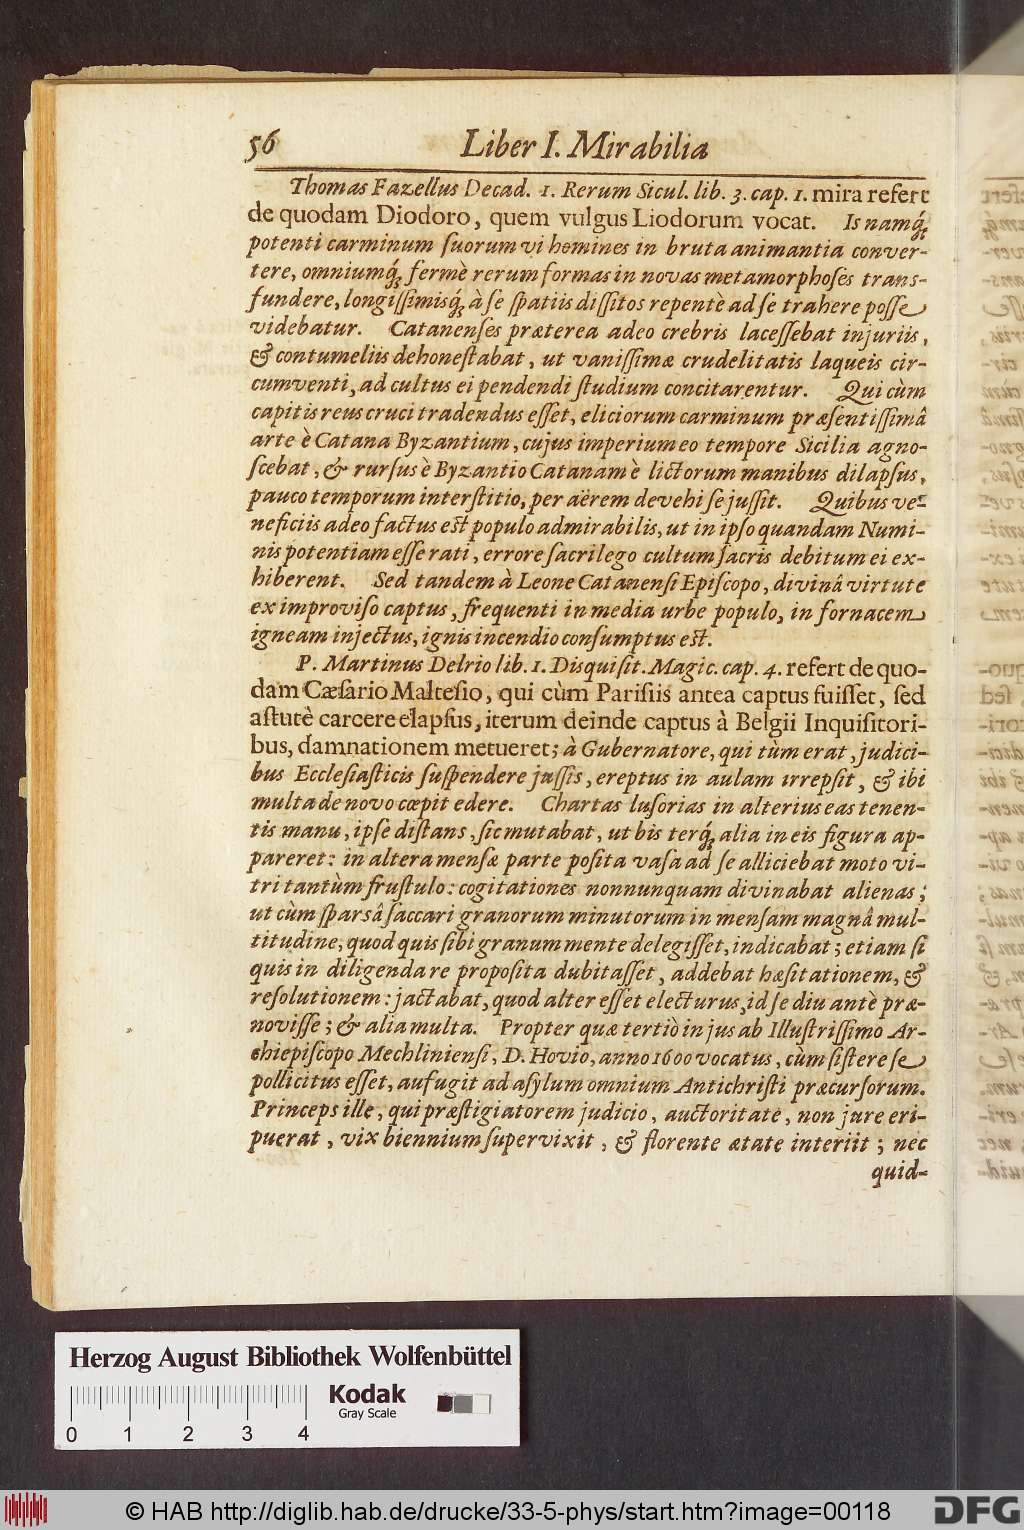 56 Liber I. Mirabilia
Thomas Fazellus Decad. 1. Rerum Sicul. lib. 3. cap. 1. mira refert
de quodam Diodoro, quem vulgus Liodorum vocat. Is namq́;
potenti carminum ſuorum vi homines in bruta animantia conver-
tere, omniumq́; fermè rerum formas in novas metamorphoſes trans-
fundere, longiſſimisq́; à ſe ſpatiis diſſitos repentè ad ſe trahere poſſe
videbatur. Catanenſes præterea adeo crebris laceſſebat injuriis,
& contumeliis dehoneſtabat, ut vaniſſimæ crudelitatis laqueis cir-
cumventi, ad cultus ei pendendi ſtudium concitarentur. Qui cùm
capitis reus cruci tradendus eſſet, eliciorum carminum præſentiſſimâ
arte è Catana Byzantium, cujus imperium eo tempore Sicilia agno-
ſcebat, & rurſus è Byzantio Catanam è lictorum manibus dilapſus,
pauco temporum interſtitio, per aërem devehi ſe juſſit. Quibus ve-
neficiis adeo factus eſt populo admirabilis, ut in ipſo quandam Numi-
nis potentiam eſſe rati, errore ſacrilego cultum ſacris debitum ei ex-
hiberent. Sed tandem à Leone Catanenſi Epiſcopo, divinâ virtute
ex improviſo captus, frequenti in media urbe populo, in fornacem
igneam injectus, ignis incendio conſumptus eſt.
P. Martinus Delrio lib. 1. Disquiſit. Magic. cap. 4. refert de quo-
dam Cæſario Malteſio, qui cùm Pariſiis antea captus fuiſſet, ſed
aſtutè carcere elapſus, iterum deinde captus à Belgii Inquiſitori-
bus, damnationem metueret; à Gubernatore, qui tùm erat, judici-
bus Eccleſiaſticis ſuſpendere juſſis, ereptus in aulam irrepſit, & ibi
multa de novo cœpit edere. Chartas luſorias in alterius eas tenen-
tis manu, ipſe diſtans, ſic mutabat, ut bis terq́; alia in eis figura ap-
pareret: in altera menſæ parte poſita vaſa ad ſe alliciebat moto vi-
tri tantùm fruſtulo: cogitationes nonnunquam divinabat alienas;
ut cùm ſparsâ ſaccari granorum minutorum in menſam magnâ mul-
titudine, quod quis ſibi granum mente delegiſſet, indicabat; etiam ſi
quis in diligenda re propoſita dubitaſſet, addebat hæſitationem, &
reſolutionem: jactabat, quod alter eſſet electurus, id ſe diu antè præ-
noviſſe; & alia multa. Propter quæ tertiò in jus ab Illuſtriſſimo Ar-
chiepiſcopo Mechlinienſi, D. Hovio, anno 1600 vocatus, cùm ſiſtere ſe
pollicitus eſſet, aufugit ad aſylum omnium Antichriſti præcurſorum.
Princeps ille, qui præſtigiatorem judicio, auctoritate, non jure eri-
puerat, vix biennium ſupervixit, & florente ætate interiit; nec
quid-
Herzog August Bibliothek Wolfenbüttel
Kodak
Gray Scale
0 1 2 3 4
© HAB http://diglib.hab.de/drucke/33-5-phys/start.htm?image=00118
DFG